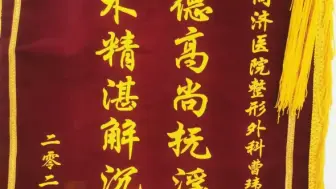 同济医院整形外科曹
德高尚抚
术精湛解沉
二零二